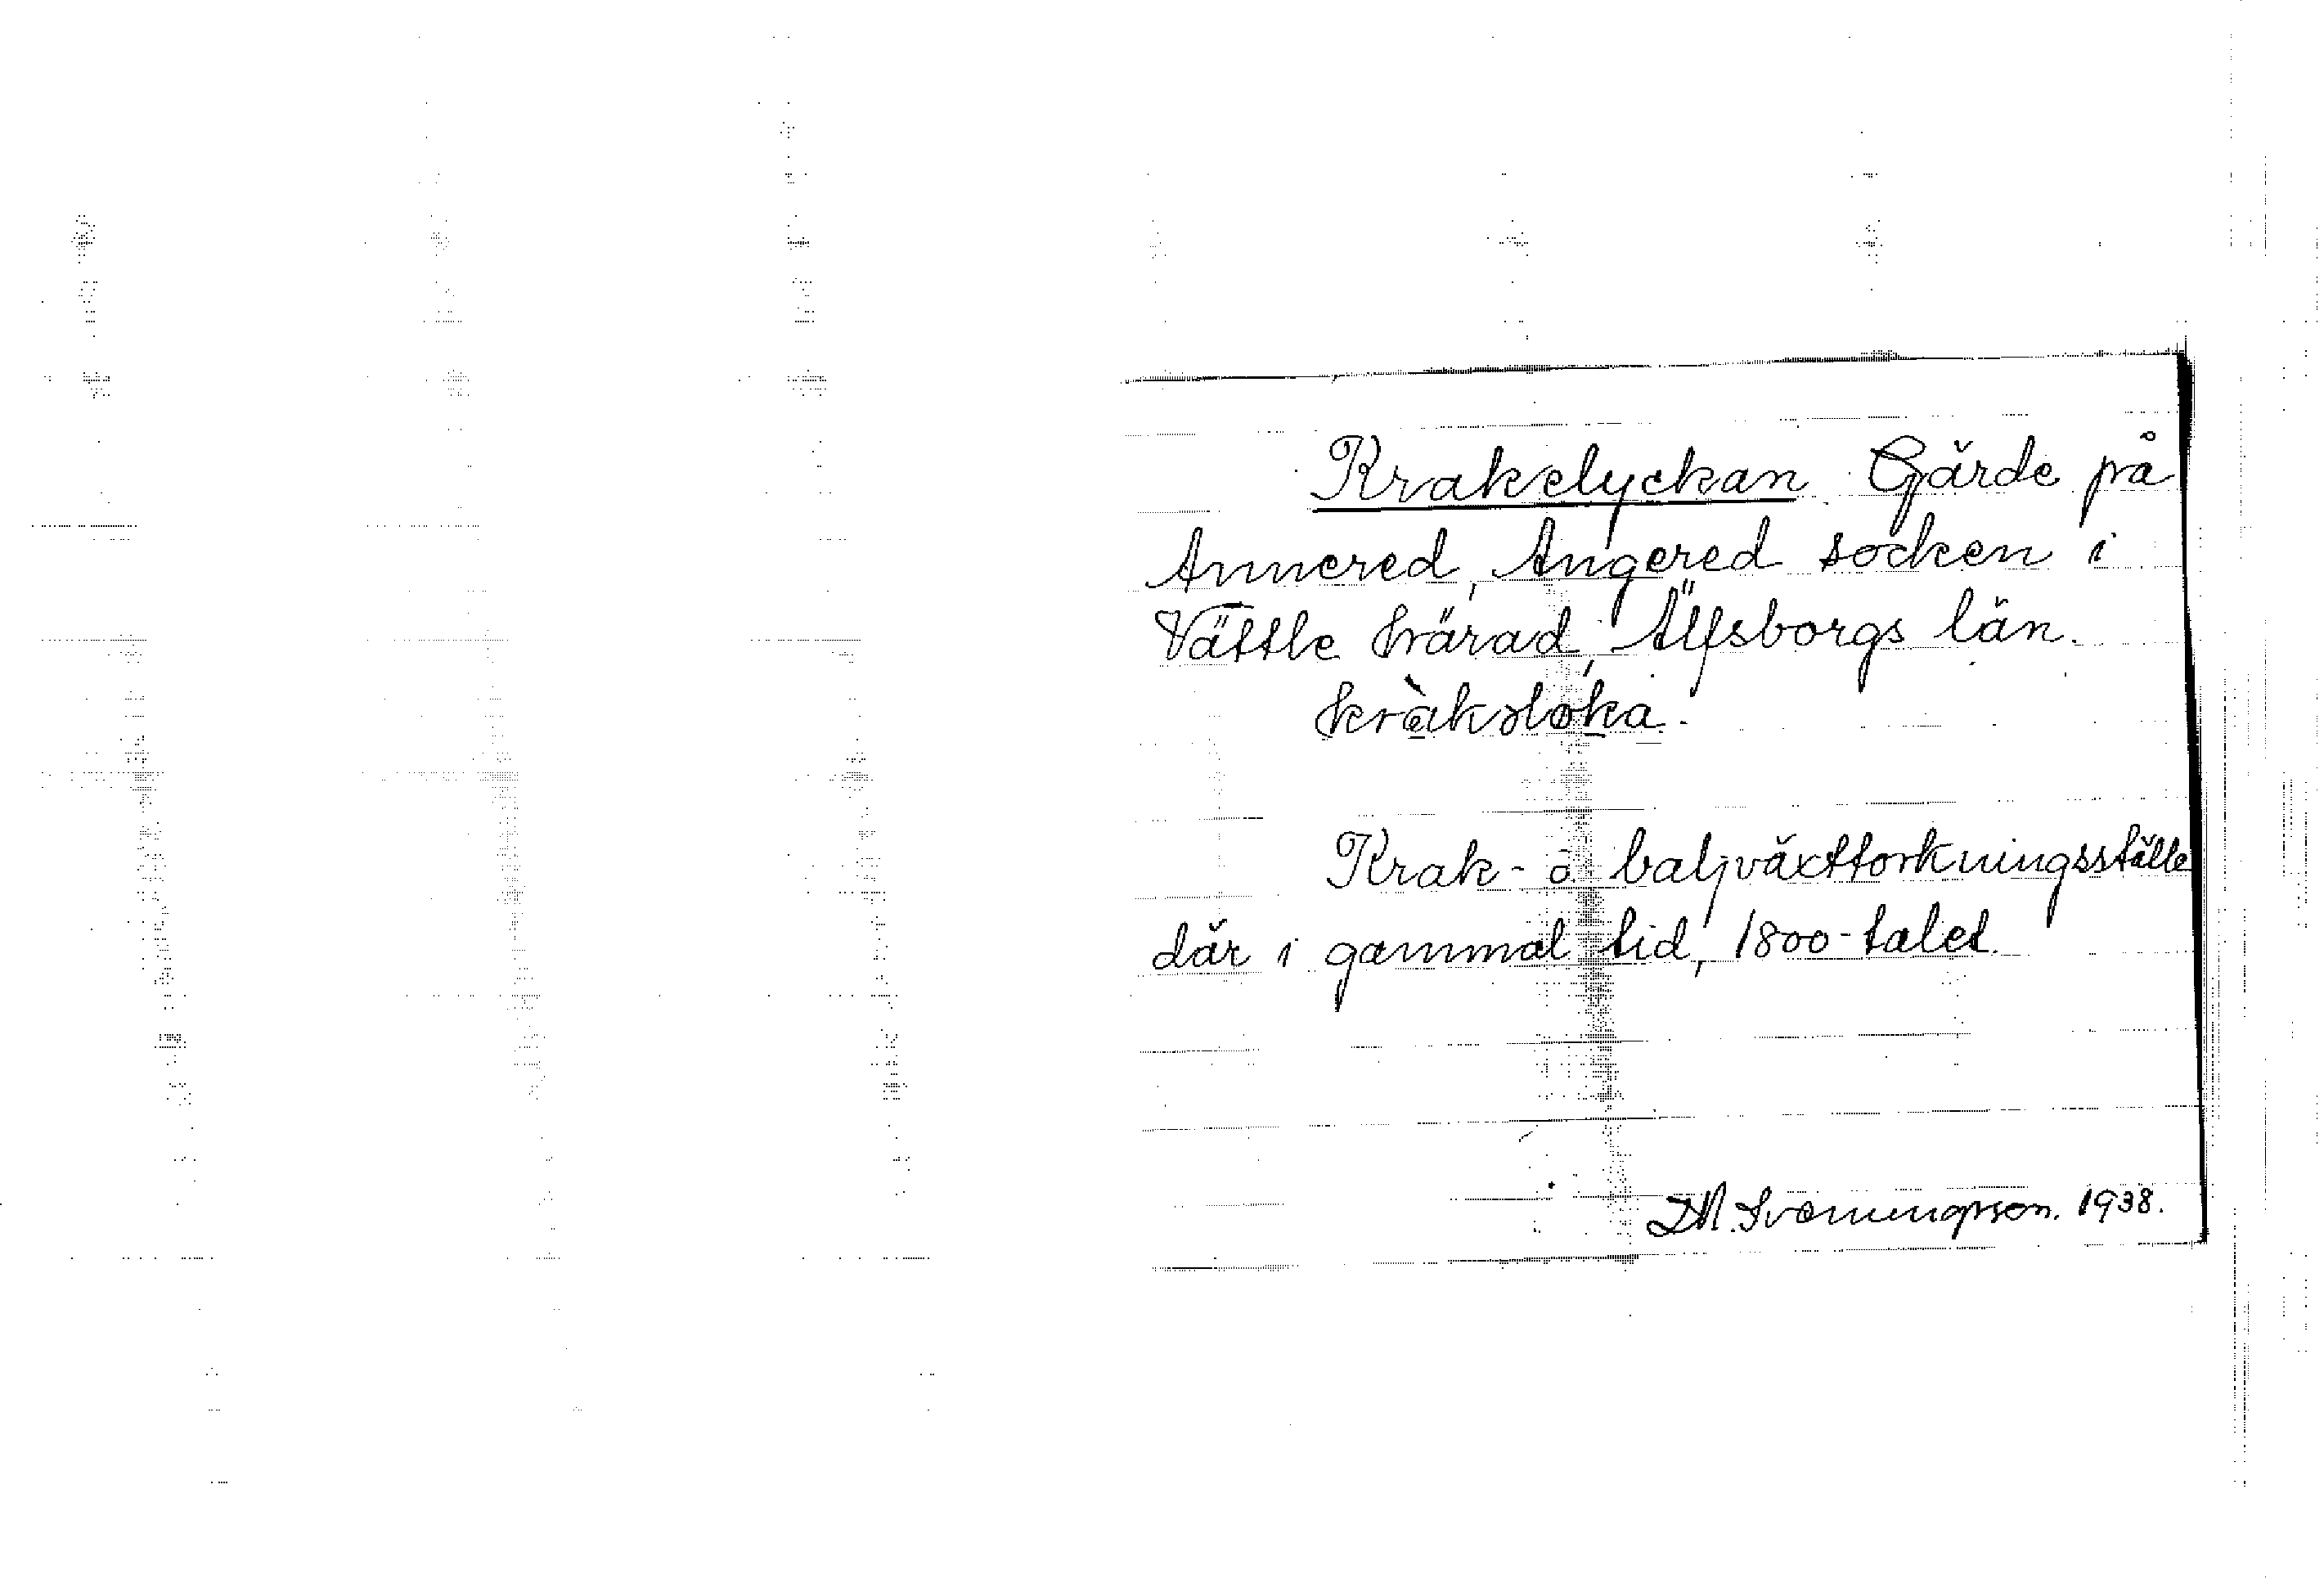 Krakelyckan Gärde på
Annered, Angered socken i
Vättle härad, Älfsborgs län.
Krak- o. baljväxttorkningsställe
där i gammal tid, 1800-talet.
1938.